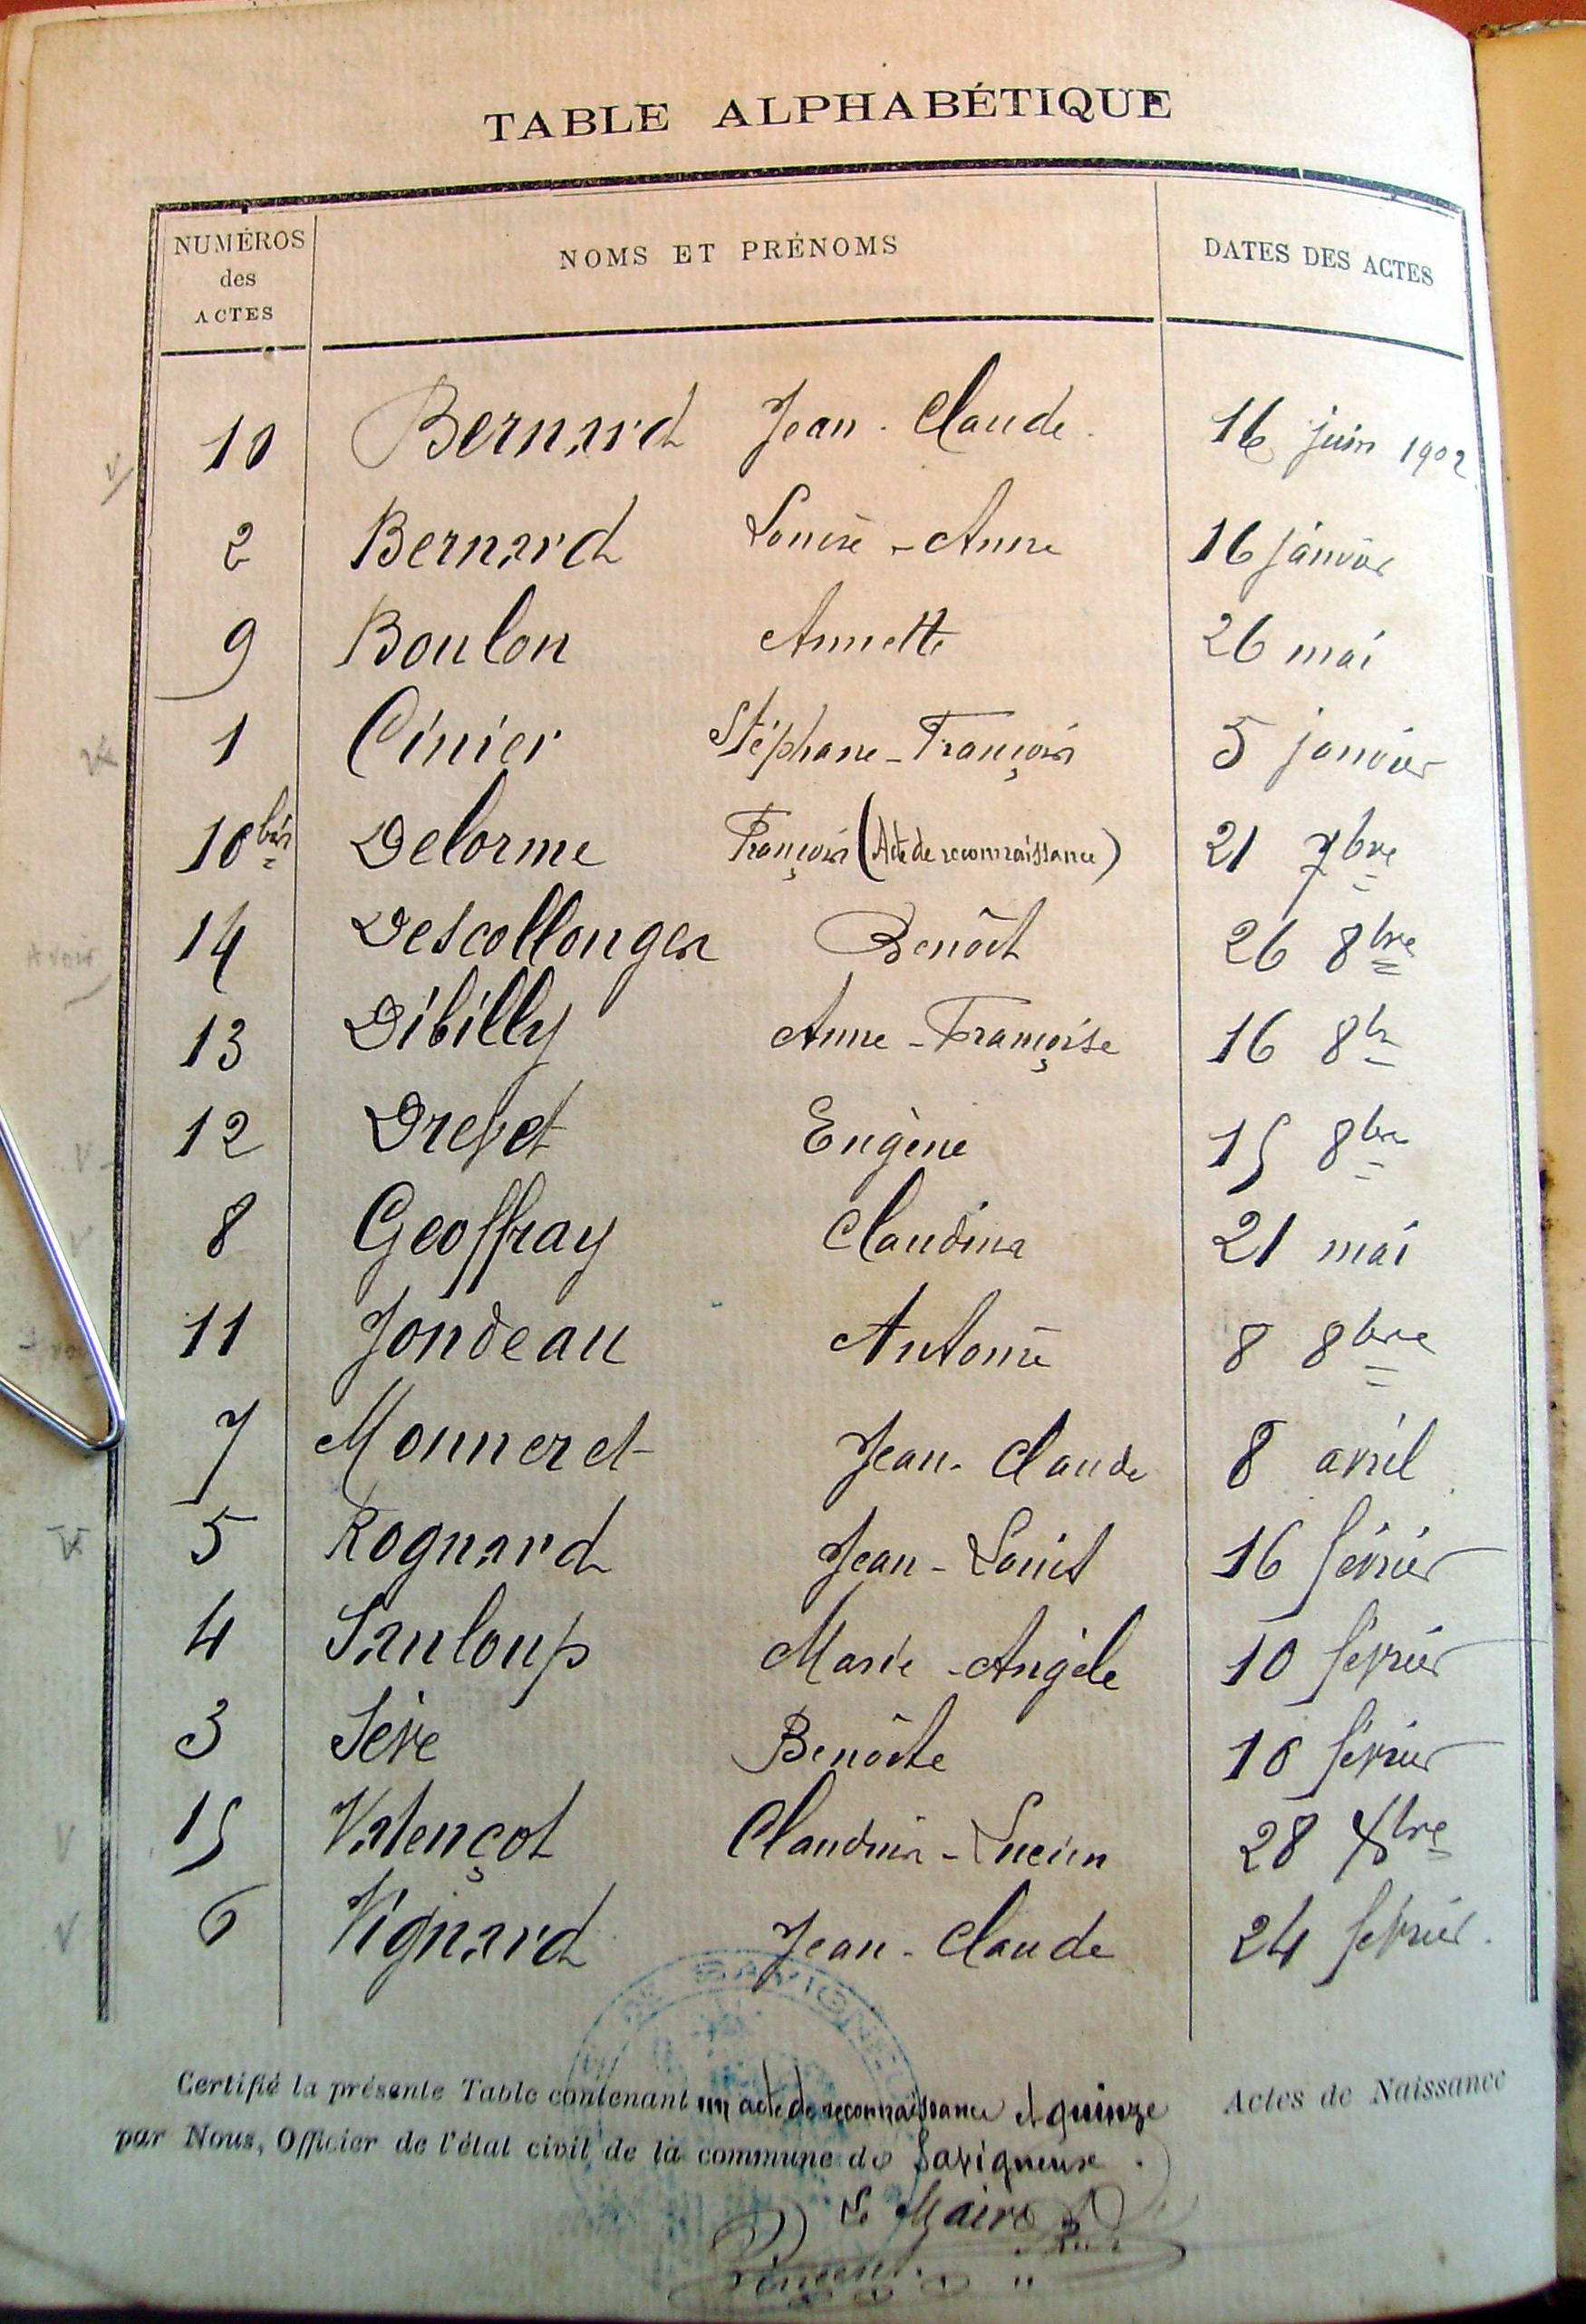 TABLE ALPHABÉTIQUE
NUMÉROS des ACTES NOMS ET PRÉNOMS DATES DES ACTES
10 Bernard Jean-Claude 16 juin 1902
2 Bernard Louise-Anne 16 janvier
9 Boulon Annette 26 mai
1 Cinier Stéphane-François 5 janvier
10 bis Delorme François (Acte de reconnaissance) 21 7bre
14 Descollonges Benoît 26 8bre
13 Dibilly Anne-Françoise 16 8bre
12 Eugène 15 8bre
8 Geoffray Claudina 21 mai
11 Jondeau Antoine 8 8bre
7 Monneret Jean-Claude 8 avril
5 Rognard Jean-Louis 16 février
4 Sauloup Marie-Angèle 10 février
3 Sève Benoîte 10 février
15 Valençot Claudius-Lucien 28 Xbre
6 Vignard Jean-Claude 24 février
Certifié la présente Table contenant un acte de reconnaissance et quinze Actes de Naissance
par Nous, Officier de l'état civil de la commune de Savigneux.
Le Maire